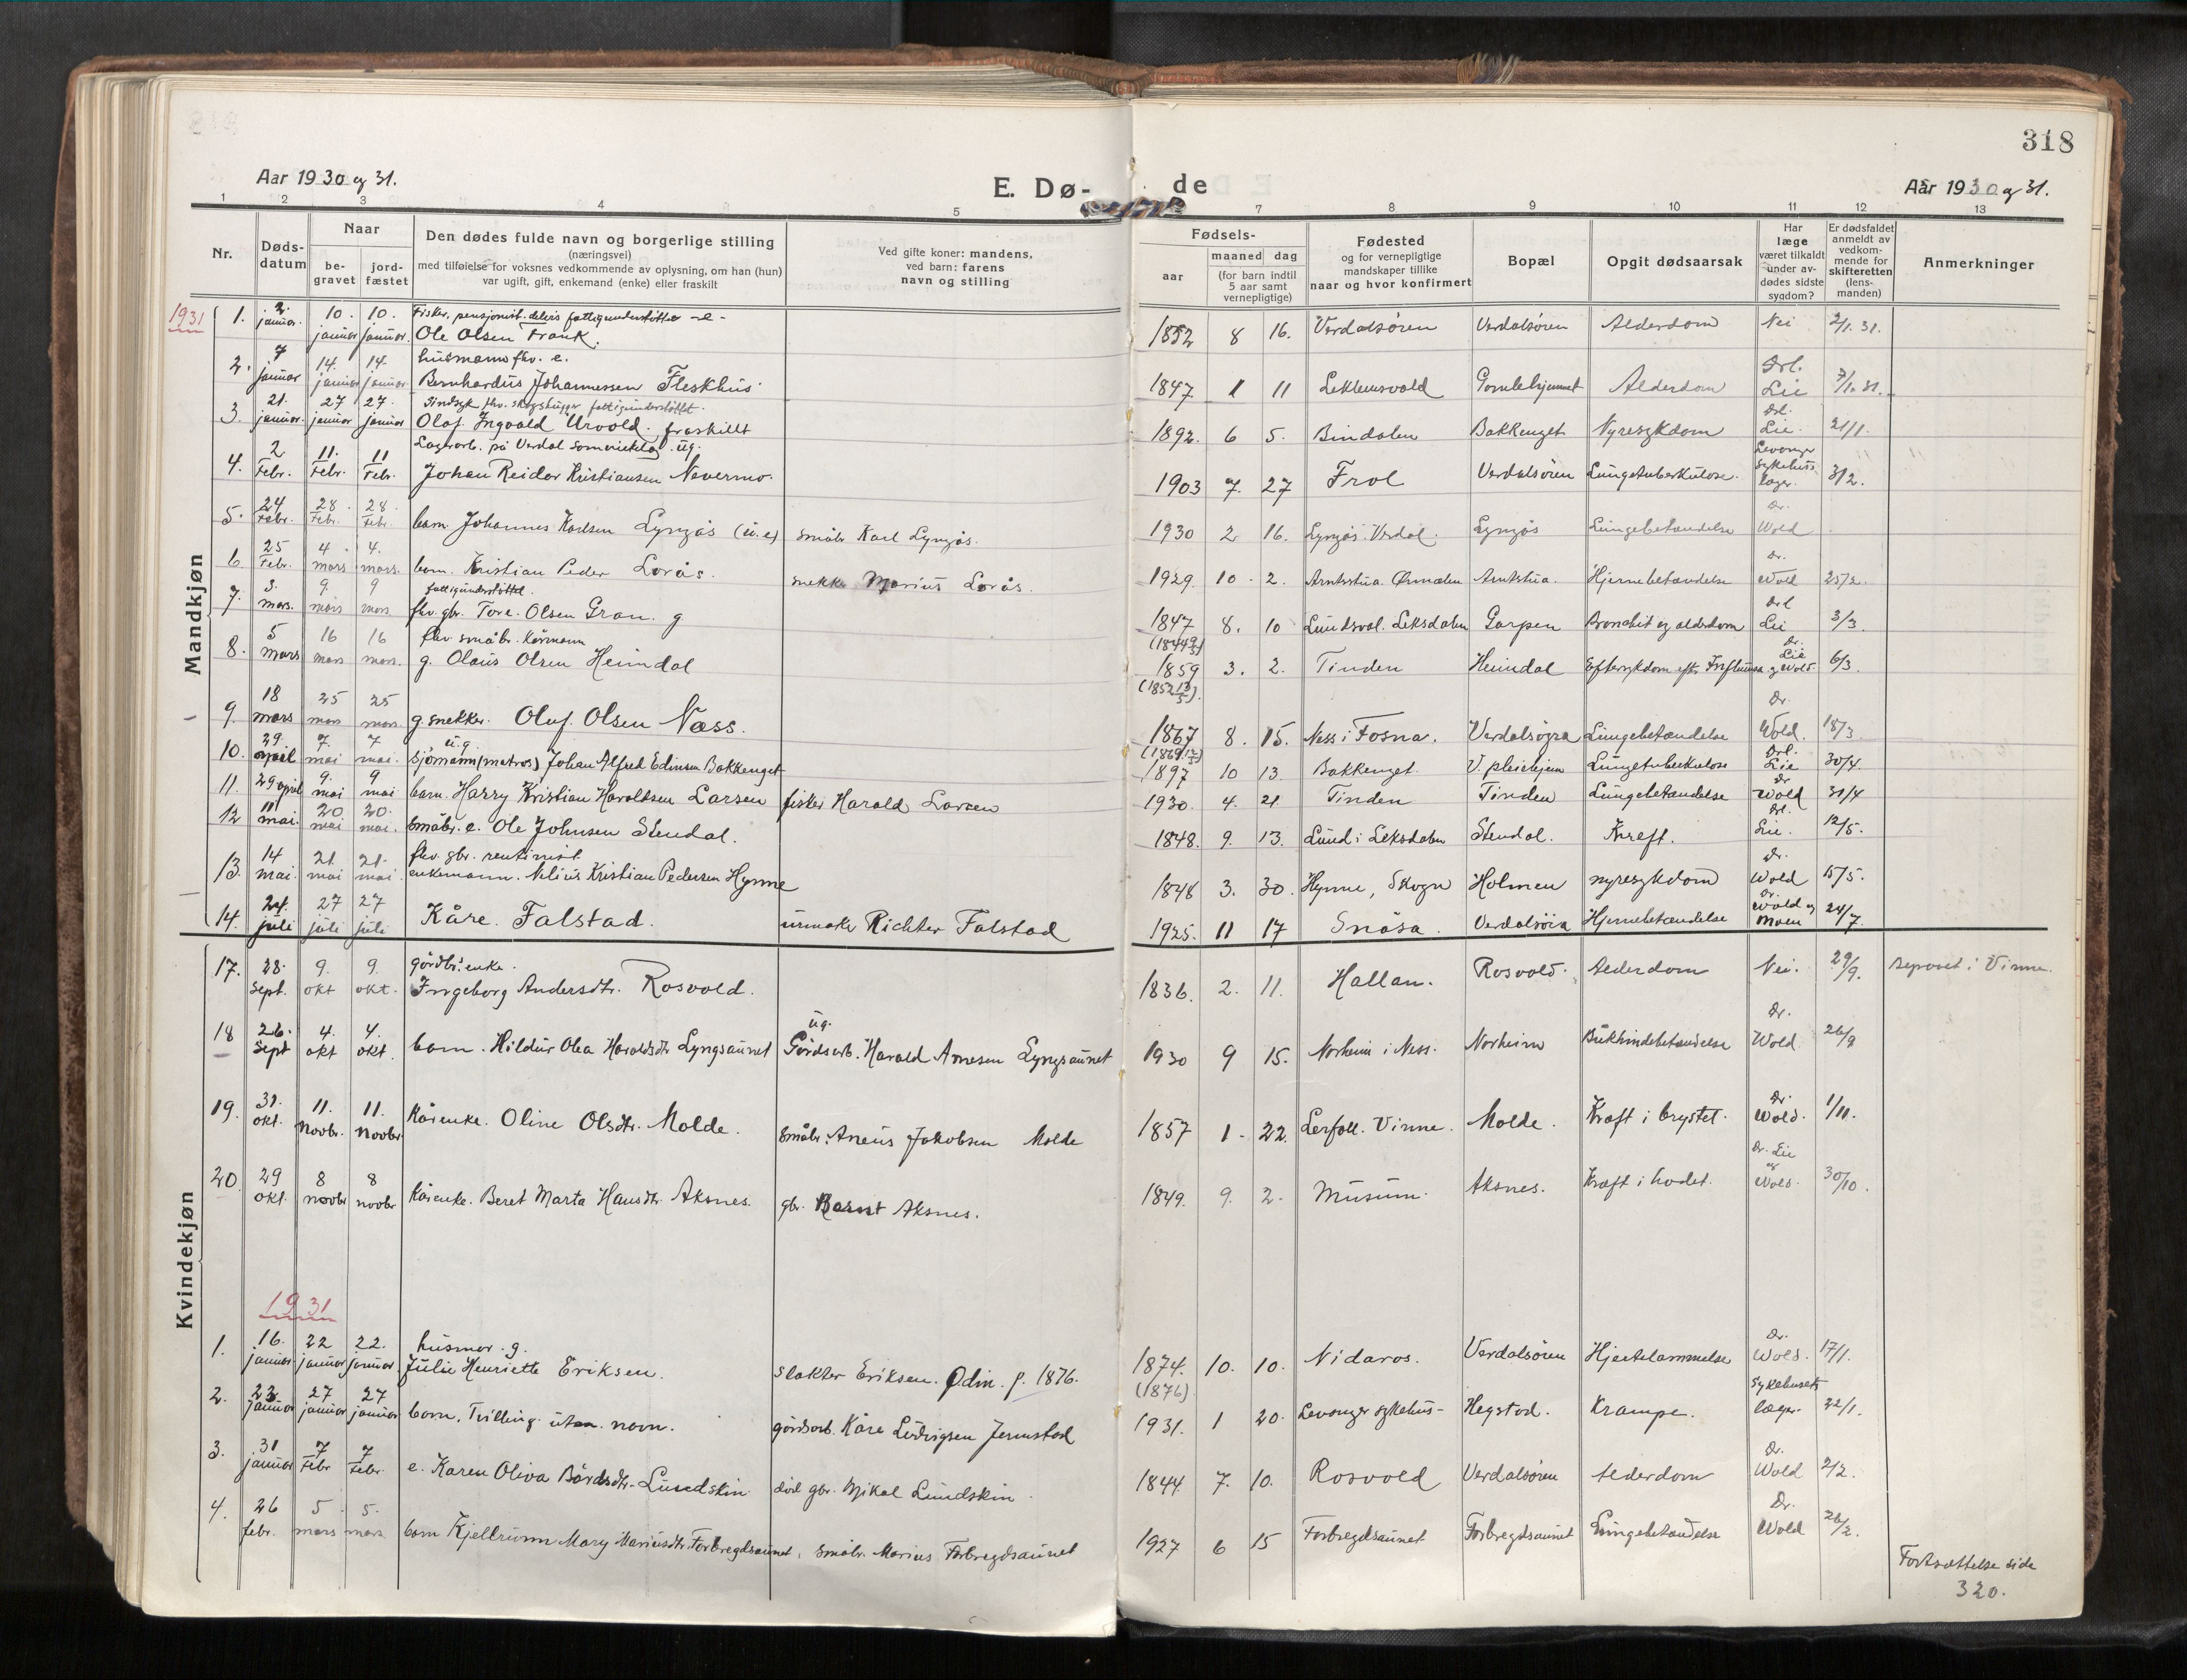 318
Aar 1930 og 31.
E. Dø-
de
Aar 1930 og 31.
1 2 3 4 5 7 8 9 10 11 12 13
Nr.
Døds-
datum
Naar
be-
gravet
jord-
fæstet
Den dødes fulde navn og borgerlige stilling
(næringsvei)
med tilføielse for voksnes vedkommende av oplysning, om han (hun)
var ugift, gift, enkemand (enke) eller fraskilt
Ved gifte koner: mandens,
ved barn: farens
navn og stilling
Fødsels-
aar
maaned dag
(for barn indtil
5 aar samt
vernepligtige)
Fødested
og for vernepligtige
mandskaper tillike
naar og hvor konfirmert
Bopæl
Opgit dødsaarsak
Har
læge
været tilkaldt
under av-
dødes sidste
sygdom?
Er dødsfaldet
anmeldt av
vedkom-
mende for
skifteretten
(lens-
manden)
Anmerkninger
Mandkjøn
1931
1. 2. januar. 10. januar 10. januar. Fisker, pensjonist. delvis fattigunderstøtte -e- Ole Olsen Frank. 1852 8 16. Verdalsøren Verdalsøren Alderdom Nei 2/1. 31.
2. 7 januar 14. januar 14. januar. husmann fhv. e. Bernhardus Johannessen Fleskhus. 1847 1 11 Leklemsvald Gamlehjemmet Alderdom Drl. Lie 7/1. 31.
3. 21. januar. 27 januar 27. januar Sindsyk fhv. skogshugger fattigunderstøttet. Olaf Ingvald Urvold. fraskillt 1892. 6 5. Bindalen Bakkenget Nyresykdom Drl. Lie. 21/1.
4. 2 Febr. 11. Febr. 11 Febr. Lagerarb. på Verdal samvirkelag. ug. Johan Reidar Kristiansen Nevermo. 1903 7. 27 Frol Verdalsøren Lungetuberkulose. Levanger sykehus læger. 3/2.
5. 24 Febr. 28. Febr. 28. Febr. barn. Johannes Karlsen Lyngås (u.e) småbr Karl Lyngås. 1930 2 16. Lyngås. Verdal. Lyngås Lungebetændelse Dr. Wold
6. 25 Febr. 4. mars 4. mars. barn. Kristian Peder Lorås. snekker Marius Lorås. 1929. 10. 2. Arntsstua. Ørmelen Arntstua. Hjernebetændelse Dr. Wold 25/2.
7. 3. mars. 9. mars 9 mars fattigunderstøttet. fhv. gbr. Tore. Olsen Gran. g 1847 8. 10 Lundsval. Leksdalen Garpen Bronchit og alderdom Drl Lie 3/3
8. 5 mars 16 mars 16 mars. fhv småbr. kårmann g. Olaus Olsen Heimdal 1859 3. 2. Tinden Heimdal Eftersykdom efter Influensa Dr. Lie og Wold. 6/3
9. 18 mars 25 mars 25 mars. g. snekker. Oluf Olsen Næss. 1867 8. 15. Ness i Fosna. Verdalsøra Lungebetændelse Dr. Wold. 18/3
10. 29. april 7. mai 7 mai. ug. sjømann (matros) Johan Alfred Edinsen Bakkenget 1897 10 13. Bakkenget. V. pleiehjem Lungetuberkulose Drl. Lie 30/4.
11. 29 april 9. mai 9 mai barn. Harry Kristian Haraldsen Larsen fisker Harald Larsen 1930. 4. 21. Tinden Tinden Lungebetændelse Dr Wold 31/4
12 11 mai. 20 mai 20. mai. Småbr. e. Ole Johnsen Stendal. 1848. 9. 13. Lund i Leksdalen Stendal. Kreft. Drl. Lie. 12/5.
13. 14 mai. 21. mai 21. mai. fhv. gbr. rentenist enkemann. Nelius Kristian Pedersen Hynne 1848 3. 30. Hynne, Skogn Holmen nyresykdom Dr. Wold 15/5.
14. 24. juli 27 juli 27 juli Kåre. Falstad. urmaker Richter Falstad 1925. 11 17 Snåsa. Verdalsøra Hjernebetændelse Dr. Wold og Moen 24/7.
Kvindekjøn
17. 28. Sept. 9. okt 9. okt. gårdbr. enke. Ingeborg Andersdtr. Rosvold. 1836. 2. 11. Hallan. Rosvold. Alderdom Nei. 29/9. Begravet i Vinne.
18 26. Sept 4. okt 4. okt. barn. Hildur Olea Haraldsdtr Lyngsaunet ug. Gårdsarb. Harald Arnesen Lyngsaunet 1930 9 15. Norheim i Ness. Norheim Bukhindebetændelse Dr. Wold. 26/9
19. 31. okt. 11. novbr. 11. novbr Kårenke. Oline Olsdtr. Molde. Småbr: Aneus Jakobsen Molde 1857 1. 22. Lerfall. Vinne. Molde. Kræft i brystet. Dr. Wold. 1/11.
20. 29 okt. 8 novbr 8 novbr Kårenke. Beret Marta Hansdtr. Aksnes. gbr. Bernt Aksnes. 1849. 9. 2. Musum. Aksnes. Kræft i hodet. Dr. Lie og Wold. 30/10.
1931
1. 16. januar 22 januar 22. januar. husmor. g. Julie Henriette Eriksen. Slakter Eriksen. Odin. f. 1876. 1874. (1876) 10. 10. Nidaros. Verdalsøren Hjertelammelse Dr. Wold. 17/1.
2. 22. januar 27 januar 27 januar barn. Tvilling. uten navn. gårdsarb. Kåre Ludvigsen Jermstad 1931. 1 20. Levanger sykehus- Hegstad. Krampe. Sykehusets læger. 22/1.
3. 31 januar 7 Febr 7 Febr. e. Karen Oliva Bårdsdtr. Lundskin. död gbr. Mikal Lundskin. 1844 7. 10. Rosvold Verdalsøren Alderdom Dr. Wold 2/2.
4. 26 febr. 5. mars 5. mars. barn Kjellrunn Mary Mariusdtr. Forbregdsaunet. småbr. Marius Forbregdsaunet 1927 6 15 Forbregdsaunet Forbregdsaunet Lungebetændelse Dr. Wold 26/2.
Fortsættelse side
320.